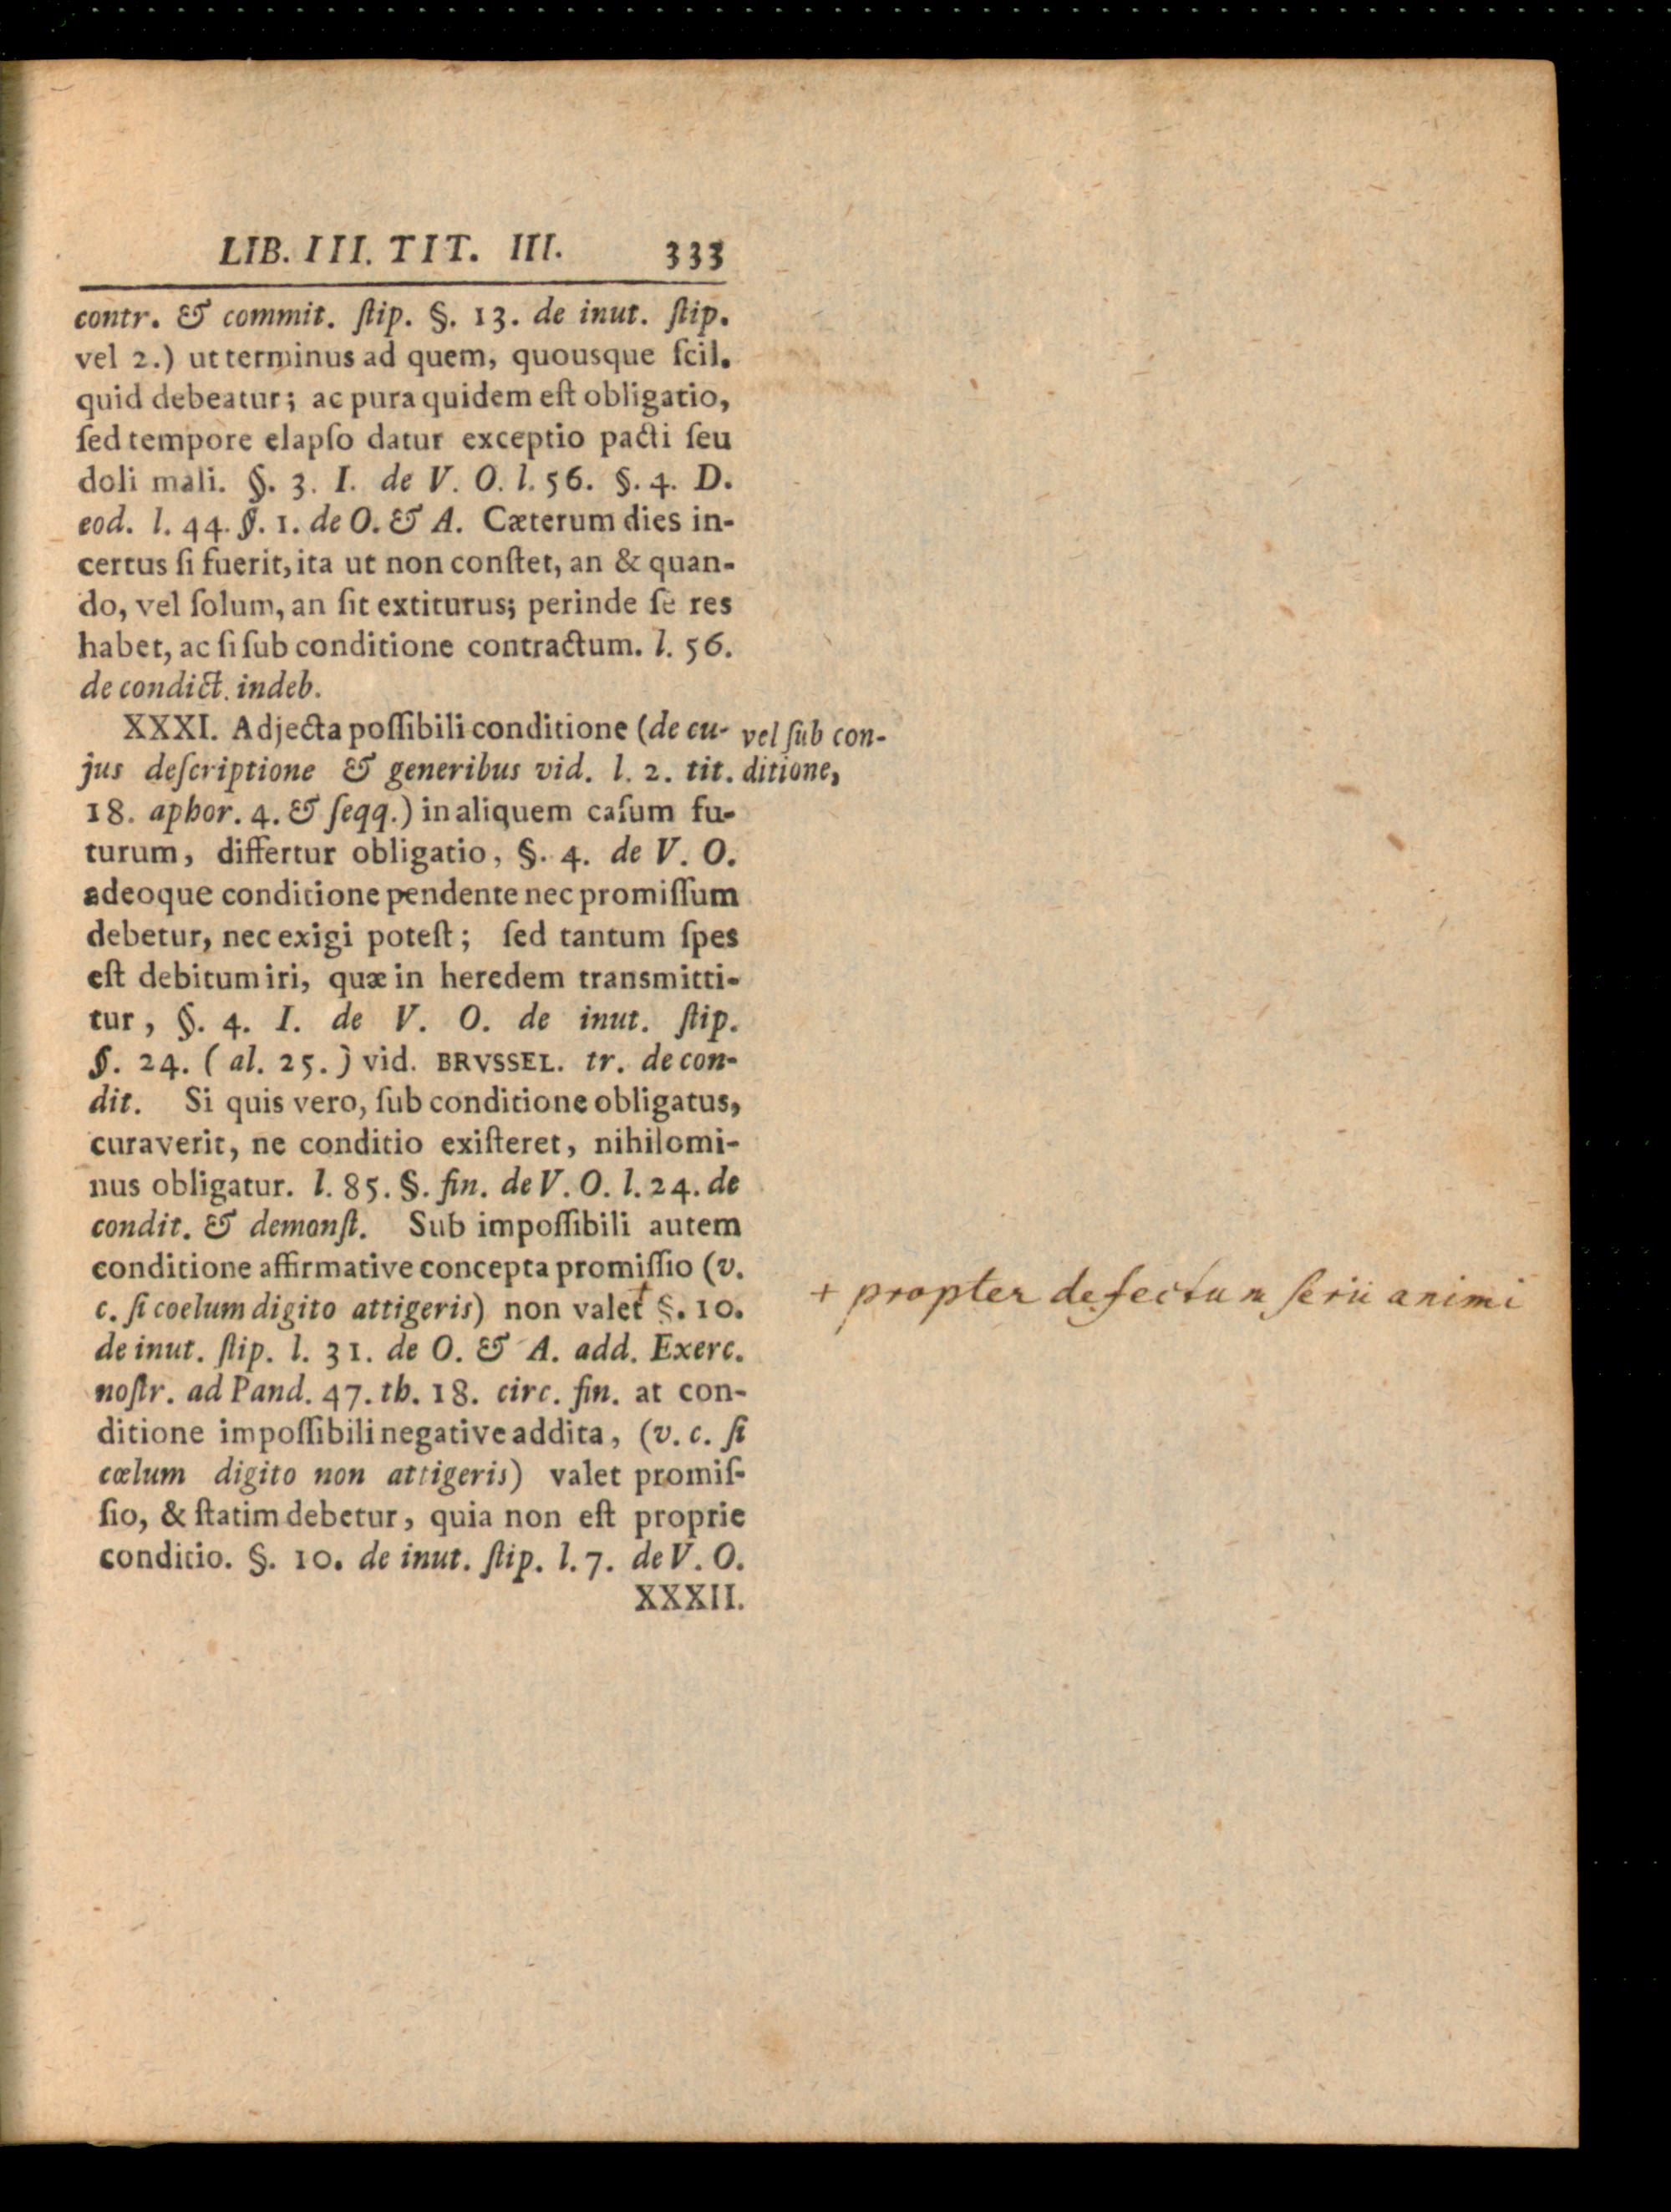 LIB. III. TIT. III. 333
contr. & commit. ſtip. §. 13. de inut. ſtip.
vel 2.) ut terminus ad quem, quousque ſcil.
quid debeatur; ac pura quidem eſt obligatio,
ſed tempore elapſo datur exceptio pacti ſeu
doli mali. §. 3. I. de V. O. l. 56. §. 4. D.
eod. l. 44. §. 1. de O. & A. Cæterum dies in-
certus ſi fuerit, ita ut non conſtet, an & quan-
do, vel ſolum, an ſit extiturus; perinde ſe res
habet, ac ſi ſub conditione contractum. l. 56.
de condict. indeb.
XXXI. Adjecta poſſibili conditione (de cu-
vel ſub con-
jus deſcriptione & generibus vid. l. 2. tit.
ditione,
18. aphor. 4. & ſeqq.) in aliquem caſum fu-
turum, differtur obligatio, §. 4. de V. O.
adeoque conditione pendente nec promiſſum
debetur, nec exigi poteſt; ſed tantum ſpes
eſt debitum iri, quæ in heredem transmitti-
tur, §. 4. I. de V. O. de inut. ſtip.
§. 24. (al. 25.) vid. BRVSSEL. tr. de con-
dit. Si quis vero, ſub conditione obligatus,
curaverit, ne conditio exiſteret, nihilomi-
nus obligatur. l. 85. §. fin. de V. O. l. 24. de
condit. & demonſt. Sub impoſſibili autem
conditione affirmative concepta promiſſio (v.
c. ſi coelum digito attigeris) non valet + §. 10.
+ propter defectum ſerii animi
de inut. ſtip. l. 31. de O. & A. add. Exerc.
noſtr. ad Pand. 47. th. 18. circ. fin. at con-
ditione impoſſibili negative addita, (v. c. ſi
cœlum digito non attigeris) valet promiſ-
ſio, & ſtatim debetur, quia non eſt proprie
conditio. §. 10. de inut. ſtip. l. 7. de V. O.
XXXII.